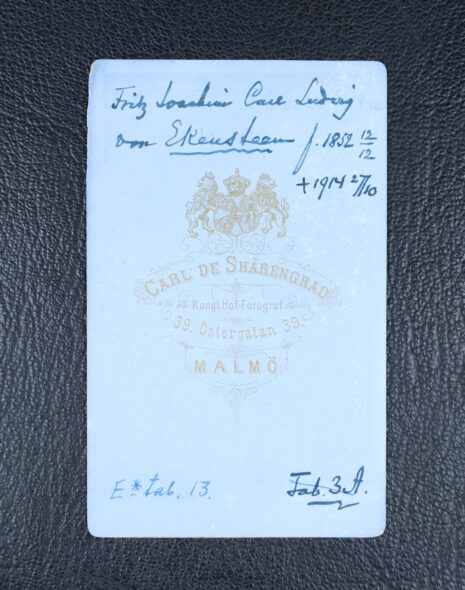 Fritz Joachim Carl Ludvig
von Ekensteen f. 1852 12/12
+ 1914 2/10
CARL DE SHÀRENGRAD
Kongl Hof-Fotograf
39. Östergatan 39.
MALMÖ
E* tab. 13.
Tab. 3 A.